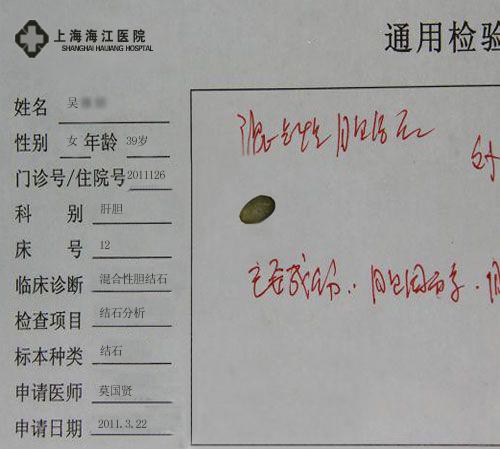 上海海江医院
SHANGHAI HAIJIANG HOSPITAL
通用检验
姓名 吴
性别 女 年龄 39岁
门诊号/住院号 2011126
科 别 肝胆
床 号 12
临床诊断 混合性胆结石
检查项目 结石分析
标本种类 结石
申请医师 莫国贤
申请日期 2011.3.22
混合性胆结石
主要成分:胆固醇.